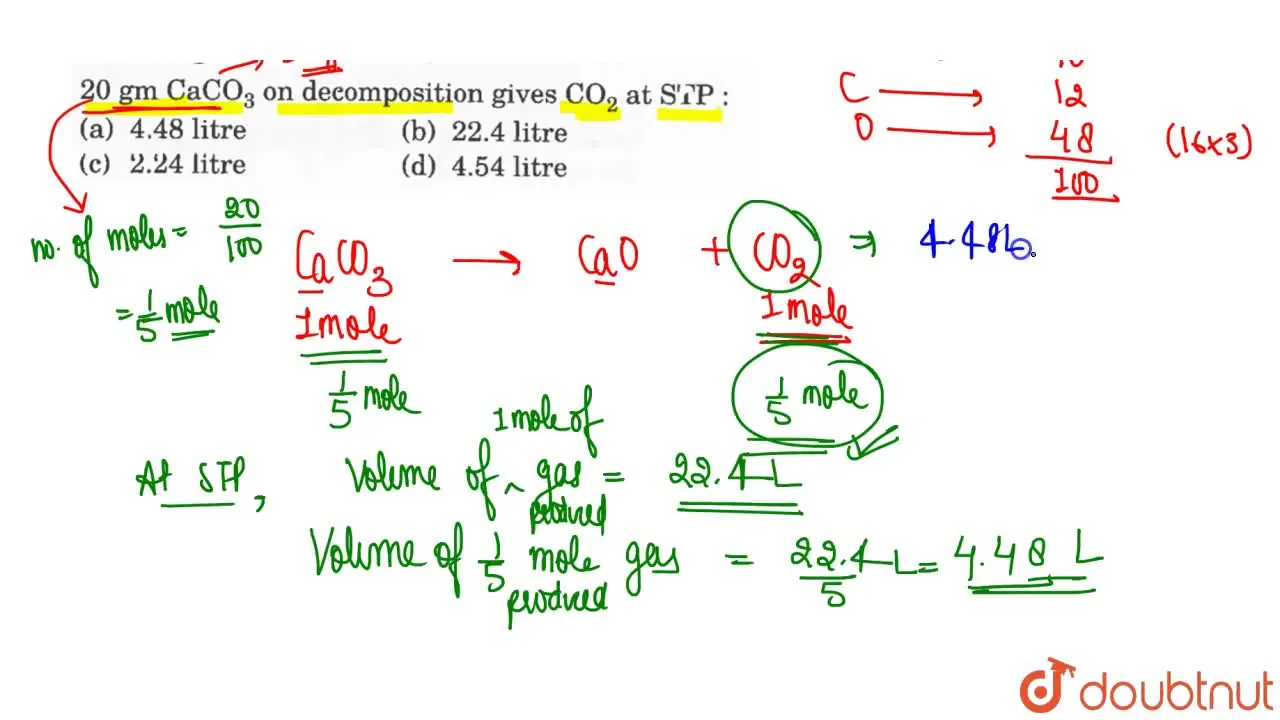 20 gm CaCO₃ on decomposition gives CO₂ at STP :
(a) 4.48 litre (b) 22.4 litre
(c) 2.24 litre (d) 4.54 litre
C → 12
O → 48 (16×3)
100
no. of moles = 20/100
= 1/5 mole
CaCO₃ → CaO + CO₂ ⇒ 4.48L
1 mole 1 mole
1/5 mole 1/5 mole
At STP, Volume of 1 mole of gas produced = 22.4 L
Volume of 1/5 mole gas produced = 22.4 L/5 = 4.48 L
doubtnut